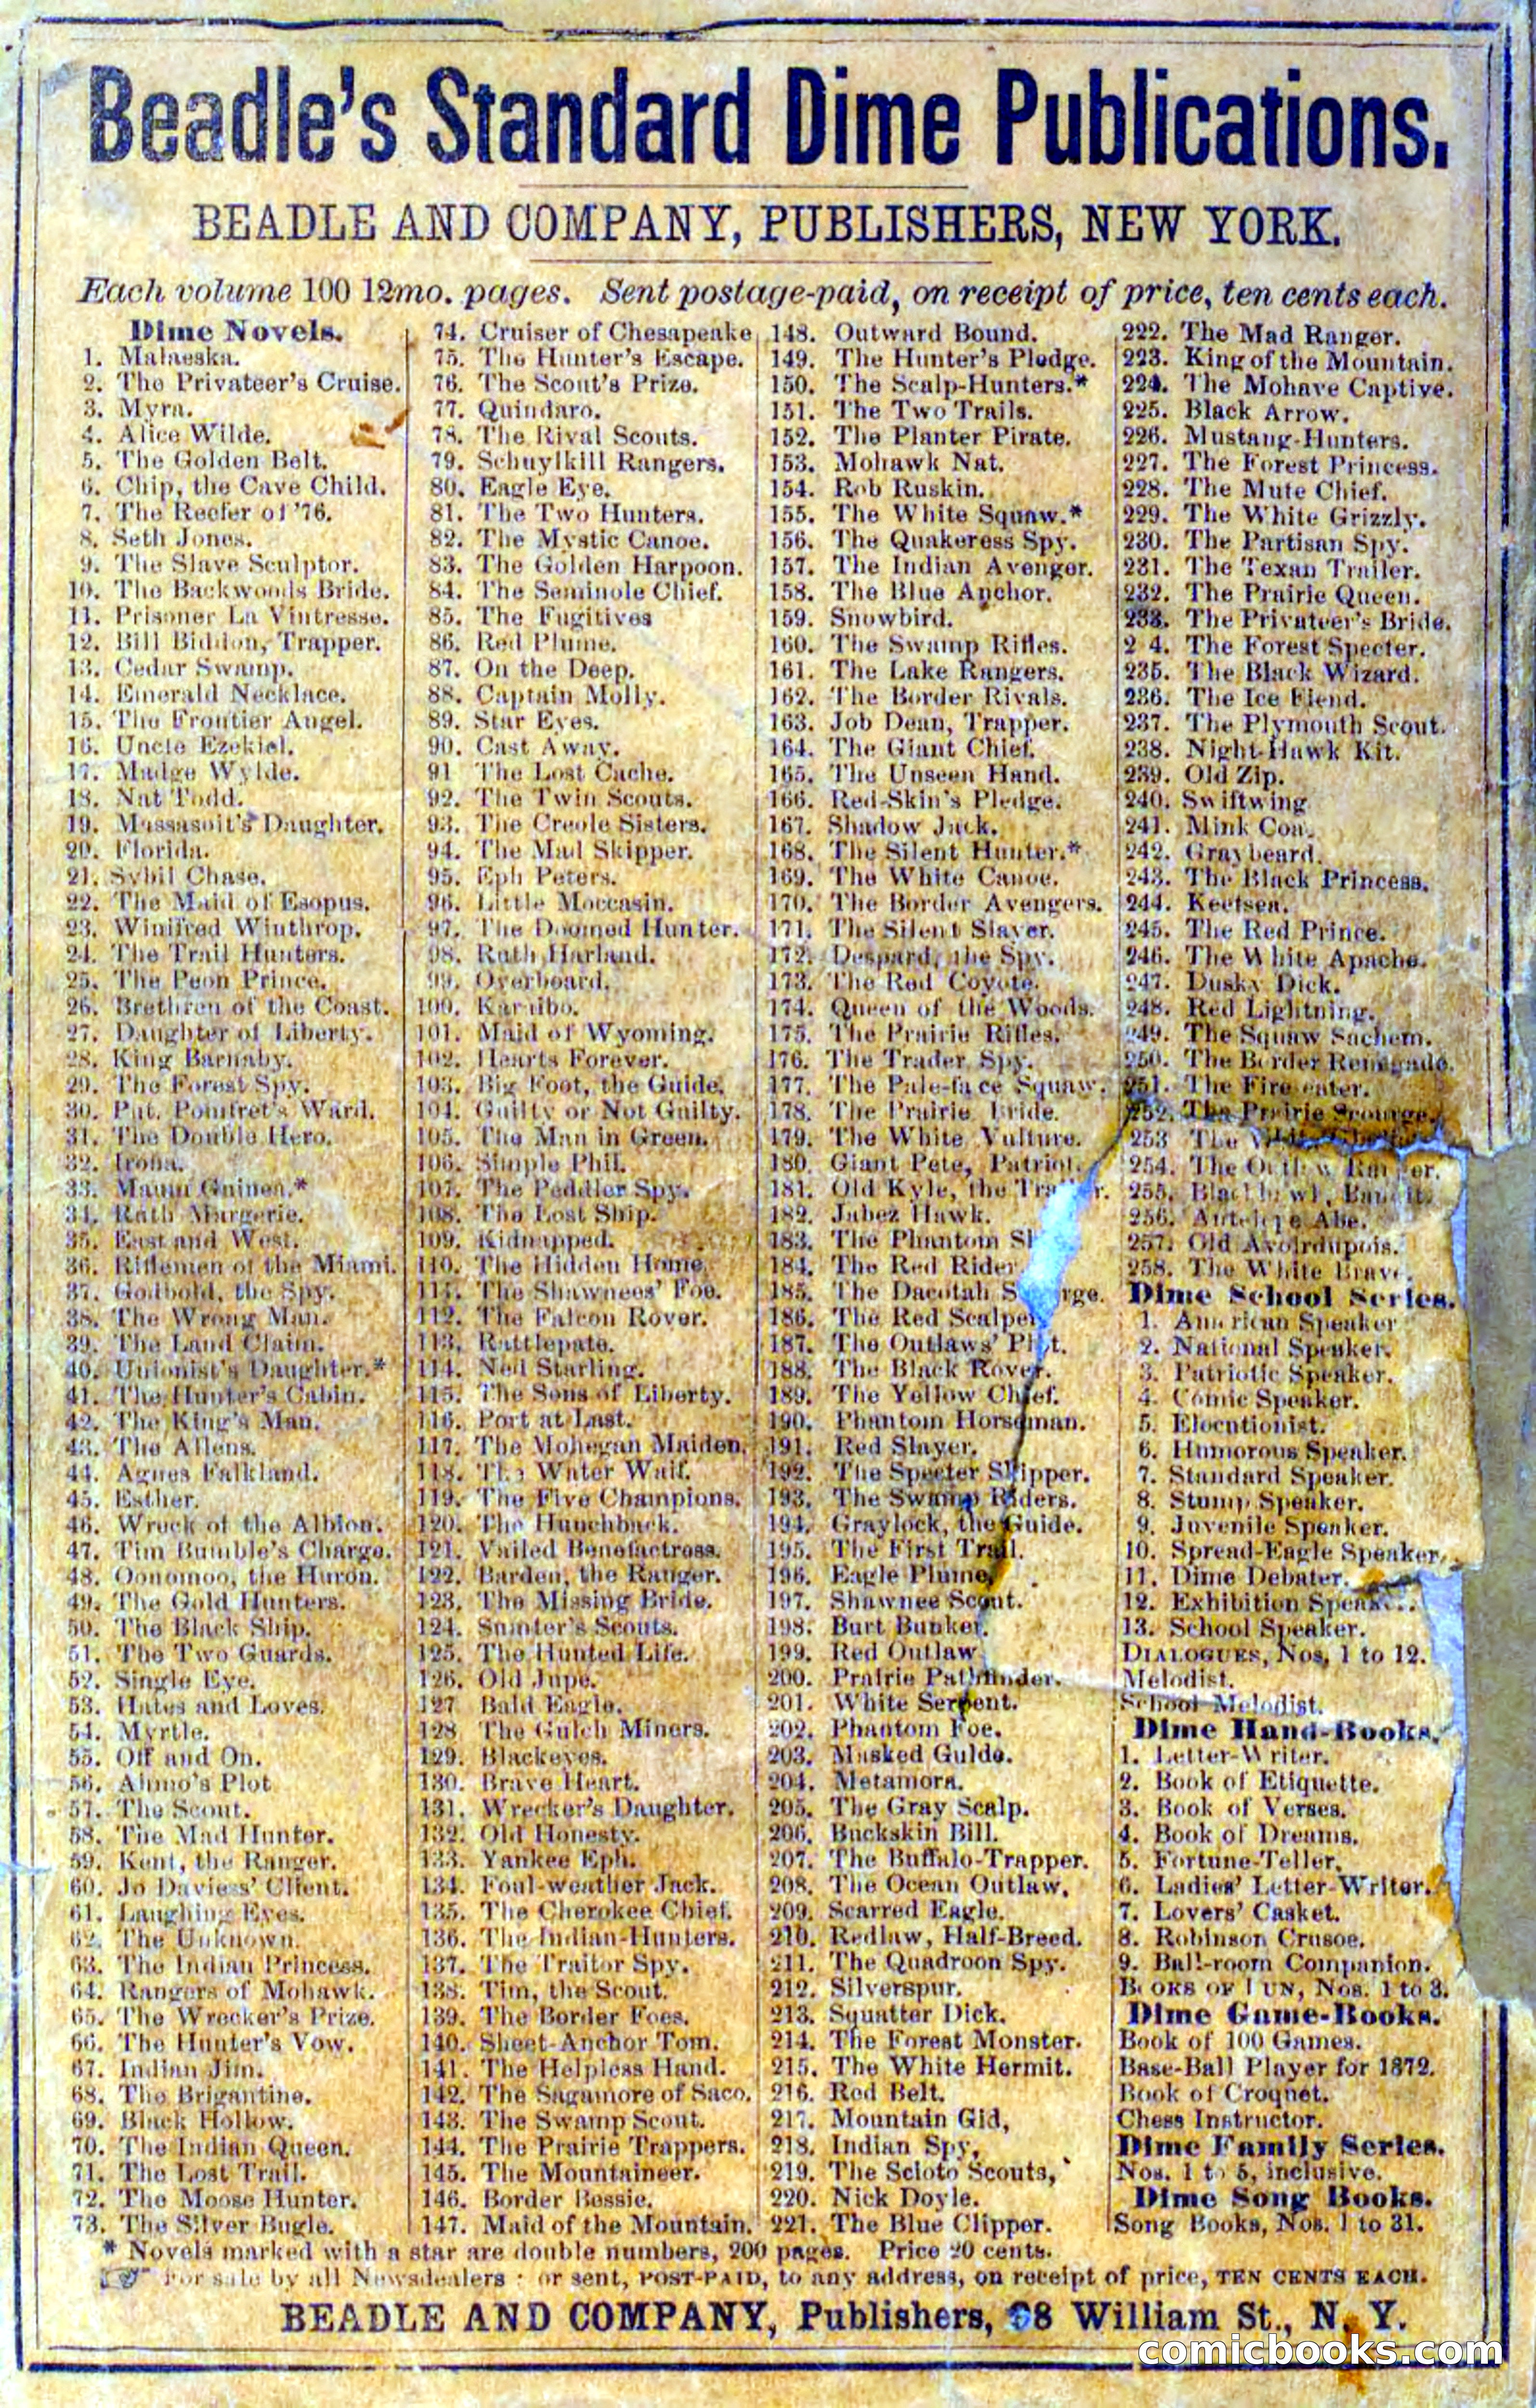 Beadle's Standard Dime Publications.
BEADLE AND COMPANY, PUBLISHERS, NEW YORK.
Each volume 100 12mo. pages. Sent postage-paid, on receipt of price, ten cents each.
Dime Novels.
1. Malaeska.
2. The Privateer's Cruise.
3. Myra.
4. Alice Wilde.
5. The Golden Belt.
6. Chip, the Cave Child.
7. The Reefer of '76.
8. Seth Jones.
9. The Slave Sculptor.
10. The Backwoods Bride.
11. Prisoner La Vintresse.
12. Bill Biddon, Trapper.
13. Cedar Swamp.
14. Emerald Necklace.
15. The Frontier Angel.
16. Uncle Ezekiel.
17. Madge Wylde.
18. Nat Todd.
19. Massasoit's Daughter.
20. Florida.
21. Sybil Chase.
22. The Maid of Esopus.
23. Winifred Winthrop.
24. The Trail Hunters.
25. The Peon Prince.
26. Brethren of the Coast.
27. Daughter of Liberty.
28. King Barnaby.
29. The Forest Spy.
30. Put. Pomfret's Ward.
31. The Double Hero.
32. Irona.
33. Maum Guinea.*
34. Ruth Margerie.
35. East and West.
36. Riflemen of the Miami.
37. Godbold, the Spy.
38. The Wrong Man.
39. The Land Claim.
40. Unionist's Daughter.*
41. The Hunter's Cabin.
42. The King's Man.
43. The Allens.
44. Agnes Falkland.
45. Esther.
46. Wreck of the Albion.
47. Tim Bumble's Charge.
48. Oonomoo, the Huron.
49. The Gold Hunters.
50. The Black Ship.
51. The Two Guards.
52. Single Eye.
53. Hates and Loves.
54. Myrtle.
55. Off and On.
56. Ahmo's Plot
57. The Scout.
58. The Mad Hunter.
59. Kent, the Ranger.
60. Jo Daviess' Client.
61. Laughing Eyes.
62. The Unknown.
63. The Indian Princess.
64. Rangers of Mohawk.
65. The Wrecker's Prize.
66. The Hunter's Vow.
67. Indian Jim.
68. The Brigantine.
69. Black Hollow.
70. The Indian Queen.
71. The Lost Trail.
72. The Moose Hunter.
73. The Silver Bugle.
74. Cruiser of Chesapeake
75. The Hunter's Escape.
76. The Scout's Prize.
77. Quindaro.
78. The Rival Scouts.
79. Schuylkill Rangers.
80. Eagle Eye.
81. The Two Hunters.
82. The Mystic Canoe.
83. The Golden Harpoon.
84. The Seminole Chief.
85. The Fugitives
86. Red Plume.
87. On the Deep.
88. Captain Molly.
89. Star Eyes.
90. Cast Away.
91 The Lost Cache.
92. The Twin Scouts.
93. The Creole Sisters.
94. The Mad Skipper.
95. Eph Peters.
96. Little Moccasin.
97. The Doomed Hunter.
98. Ruth Harland.
99. Overboard.
100. Karaibo.
101. Maid of Wyoming.
102. Hearts Forever.
103. Big Foot, the Guide.
104. Guilty or Not Guilty.
105. The Man in Green.
106. Simple Phil.
107. The Peddler Spy.
108. The Lost Ship.
109. Kidnapped.
110. The Hidden Home.
111. The Shawnees' Foe.
112. The Falcon Rover.
113. Rattlepate.
114. Ned Starling.
115. The Sons of Liberty.
116. Port at Last.
117. The Mohegan Maiden.
118. The Water Waif.
119. The Five Champions.
120. The Hunchback.
121. Vailed Benefactress.
122. Barden, the Ranger.
123. The Missing Bride.
124. Sumter's Scouts.
125. The Hunted Life.
126. Old Jupe.
127 Bald Eagle.
128 The Gulch Miners.
129. Blackeyes.
130. Brave Heart.
131. Wrecker's Daughter.
132. Old Honesty.
133. Yankee Eph.
134. Foul-weather Jack.
135. The Cherokee Chief.
136. The Indian-Hunters.
137. The Traitor Spy.
138. Tim, the Scout.
139. The Border Foes.
140. Sheet-Anchor Tom.
141. The Helpless Hand.
142. The Sagamore of Saco.
143. The Swamp Scout.
144. The Prairie Trappers.
145. The Mountaineer.
146. Border Bessie.
147. Maid of the Mountain.
148. Outward Bound.
149. The Hunter's Pledge.
150. The Scalp-Hunters.*
151. The Two Trails.
152. The Planter Pirate.
153. Mohawk Nat.
154. Rob Ruskin.
155. The White Squaw.*
156. The Quakeress Spy.
157. The Indian Avenger.
158. The Blue Anchor.
159. Snowbird.
160. The Swamp Rifles.
161. The Lake Rangers.
162. The Border Rivals.
163. Job Dean, Trapper.
164. The Giant Chief.
165. The Unseen Hand.
166. Red-Skin's Pledge.
167. Shadow Jack.
168. The Silent Hunter.*
169. The White Canoe.
170. The Border Avengers.
171. The Silent Slayer.
172. Despard, the Spy.
173. The Red Coyote.
174. Queen of the Woods.
175. The Prairie Rifles.
176. The Trader Spy.
177. The Pale-face Squaw.
178. The Prairie Bride.
179. The White Vulture.
180. Giant Pete, Patriot.
181. Old Kyle, the Trailer.
182. Jabez Hawk.
183. The Phantom
184. The Red Rider
185. The Dacotah
186. The Red Scalper
187. The Outlaws' Plot.
188. The Black Rover.
189. The Yellow Chief.
190. Phantom Horseman.
191. Red Slayer.
192. The Specter Skipper.
193. The Swamp Riders.
194. Graylock, the Guide.
195. The First Trail.
196. Eagle Plume.
197. Shawnee Scout.
198. Burt Bunker.
199. Red Outlaw
200. Prairie Pathfinder.
201. White Serpent.
202. Phantom Foe.
203. Masked Guide.
204. Metamora.
205. The Gray Scalp.
206. Buckskin Bill.
207. The Buffalo-Trapper.
208. The Ocean Outlaw.
209. Scarred Eagle.
210. Redlaw, Half-Breed.
211. The Quadroon Spy.
212. Silverspur.
213. Squatter Dick.
214. The Forest Monster.
215. The White Hermit.
216. Red Belt.
217. Mountain Gid,
218. Indian Spy,
219. The Scioto Scouts,
220. Nick Doyle.
221. The Blue Clipper.
222. The Mad Ranger.
223. King of the Mountain.
224. The Mohave Captive.
225. Black Arrow.
226. Mustang-Hunters.
227. The Forest Princess.
228. The Mute Chief.
229. The White Grizzly.
230. The Partisan Spy.
231. The Texan Trailer.
232. The Prairie Queen.
233. The Privateer's Bride.
2 4. The Forest Specter.
235. The Black Wizard.
236. The Ice Fiend.
237. The Plymouth Scout.
238. Night-Hawk Kit.
239. Old Zip.
240. Swiftwing
241. Mink Coat.
242. Graybeard.
243. The Black Princess.
244. Keetsea.
245. The Red Prince.
246. The White Apache.
247. Dusky Dick.
248. Red Lightning.
249. The Squaw Sachem.
250. The Border Renegade.
251. The Fire-eater.
252. The Prairie Scourge.
253 The
254. The Outlaw Ranger.
255. Bandit.
256. Antelope Abe.
257. Old Avoirdupois.
258. The White Brave.
Dime School Series.
1. American Speaker
2. National Speaker.
3. Patriotic Speaker.
4. Comic Speaker.
5. Elocutionist.
6. Humorous Speaker.
7. Standard Speaker.
8. Stump Speaker.
9. Juvenile Speaker.
10. Spread-Eagle Speaker.
11. Dime Debater.
12. Exhibition
13. School Speaker.
DIALOGUES, Nos. 1 to 12.
Melodist.
School Melodist.
Dime Hand-Books.
1. Letter-Writer.
2. Book of Etiquette.
3. Book of Verses.
4. Book of Dreams.
5. Fortune-Teller.
6. Ladies' Letter-Writer.
7. Lovers' Casket.
8. Robinson Crusoe.
9. Ball-room Companion.
BOOKS OF FUN, Nos. 1 to 3.
Dime Game-Books.
Book of 100 Games.
Base-Ball Player for 1872.
Book of Croquet.
Chess Instructor.
Dime Family Series.
Nos. 1 to 5, inclusive.
Dime Song Books.
Song Books, Nos. 1 to 31.
* Novels marked with a star are double numbers, 200 pages. Price 20 cents.
☞ For sale by all Newsdealers; or sent, POST-PAID, to any address, on receipt of price, TEN CENTS EACH.
BEADLE AND COMPANY, Publishers, 98 William St., N. Y.
comicbooks.com